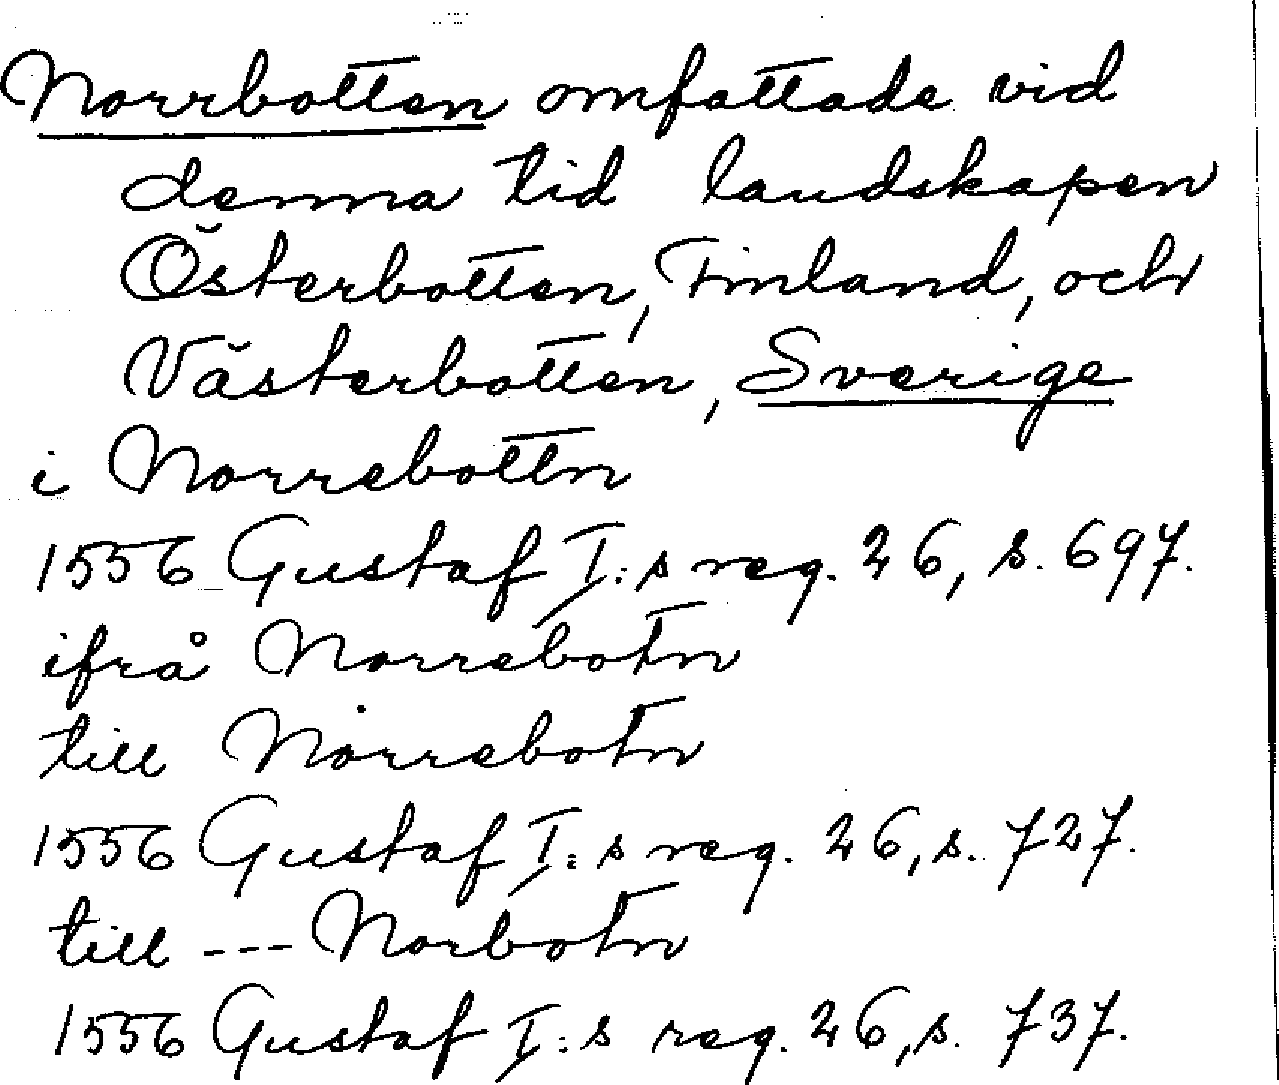 Norrbotten omfattade vid
denna tid landskapen
Österbotten, Finland, och
Västerbotten, Sverige
i Norrebottn
1556 Gustaf I:s reg. 26, s. 697.
ifrå Norrebotn
till Norrebotn
1556 Gustaf I:s reg. 26, s. 727.
till --- Norbotn
1556 Gustaf I:s reg. 26, s. 737.